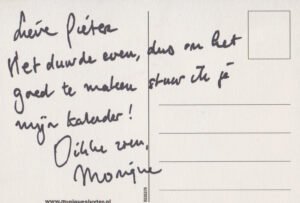 Lieve Pieter
Het duurde even, dus om het
goed te maken stuur ik je
mijn kalender!
Dikke zoen,
Monique